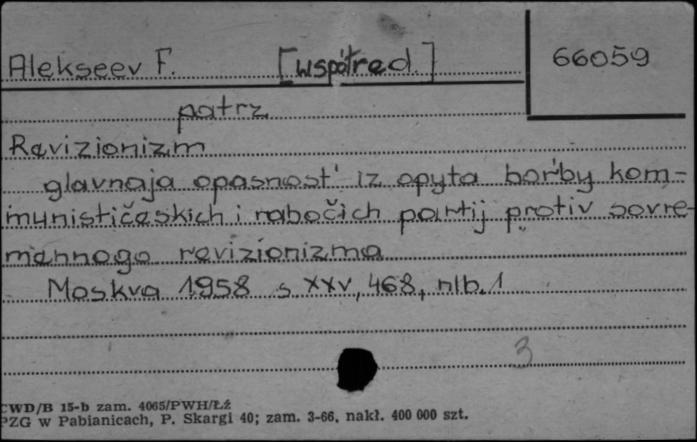 Alekseev F. [współred.] 66059
patrz
Revizionizm
glavnaja opasnost' iz opyta bor'by kom-
munističeskich i rabočich partij protiv sovre-
mennogo revizionizma
Moskva 1958 s XXV, 468, nlb. 1
3
CWD/B 15-b zam. 4065/PWH/Łź
PZG w Pabianicach, P. Skargi 40; zam. 3-66, nakł. 400 000 szt.